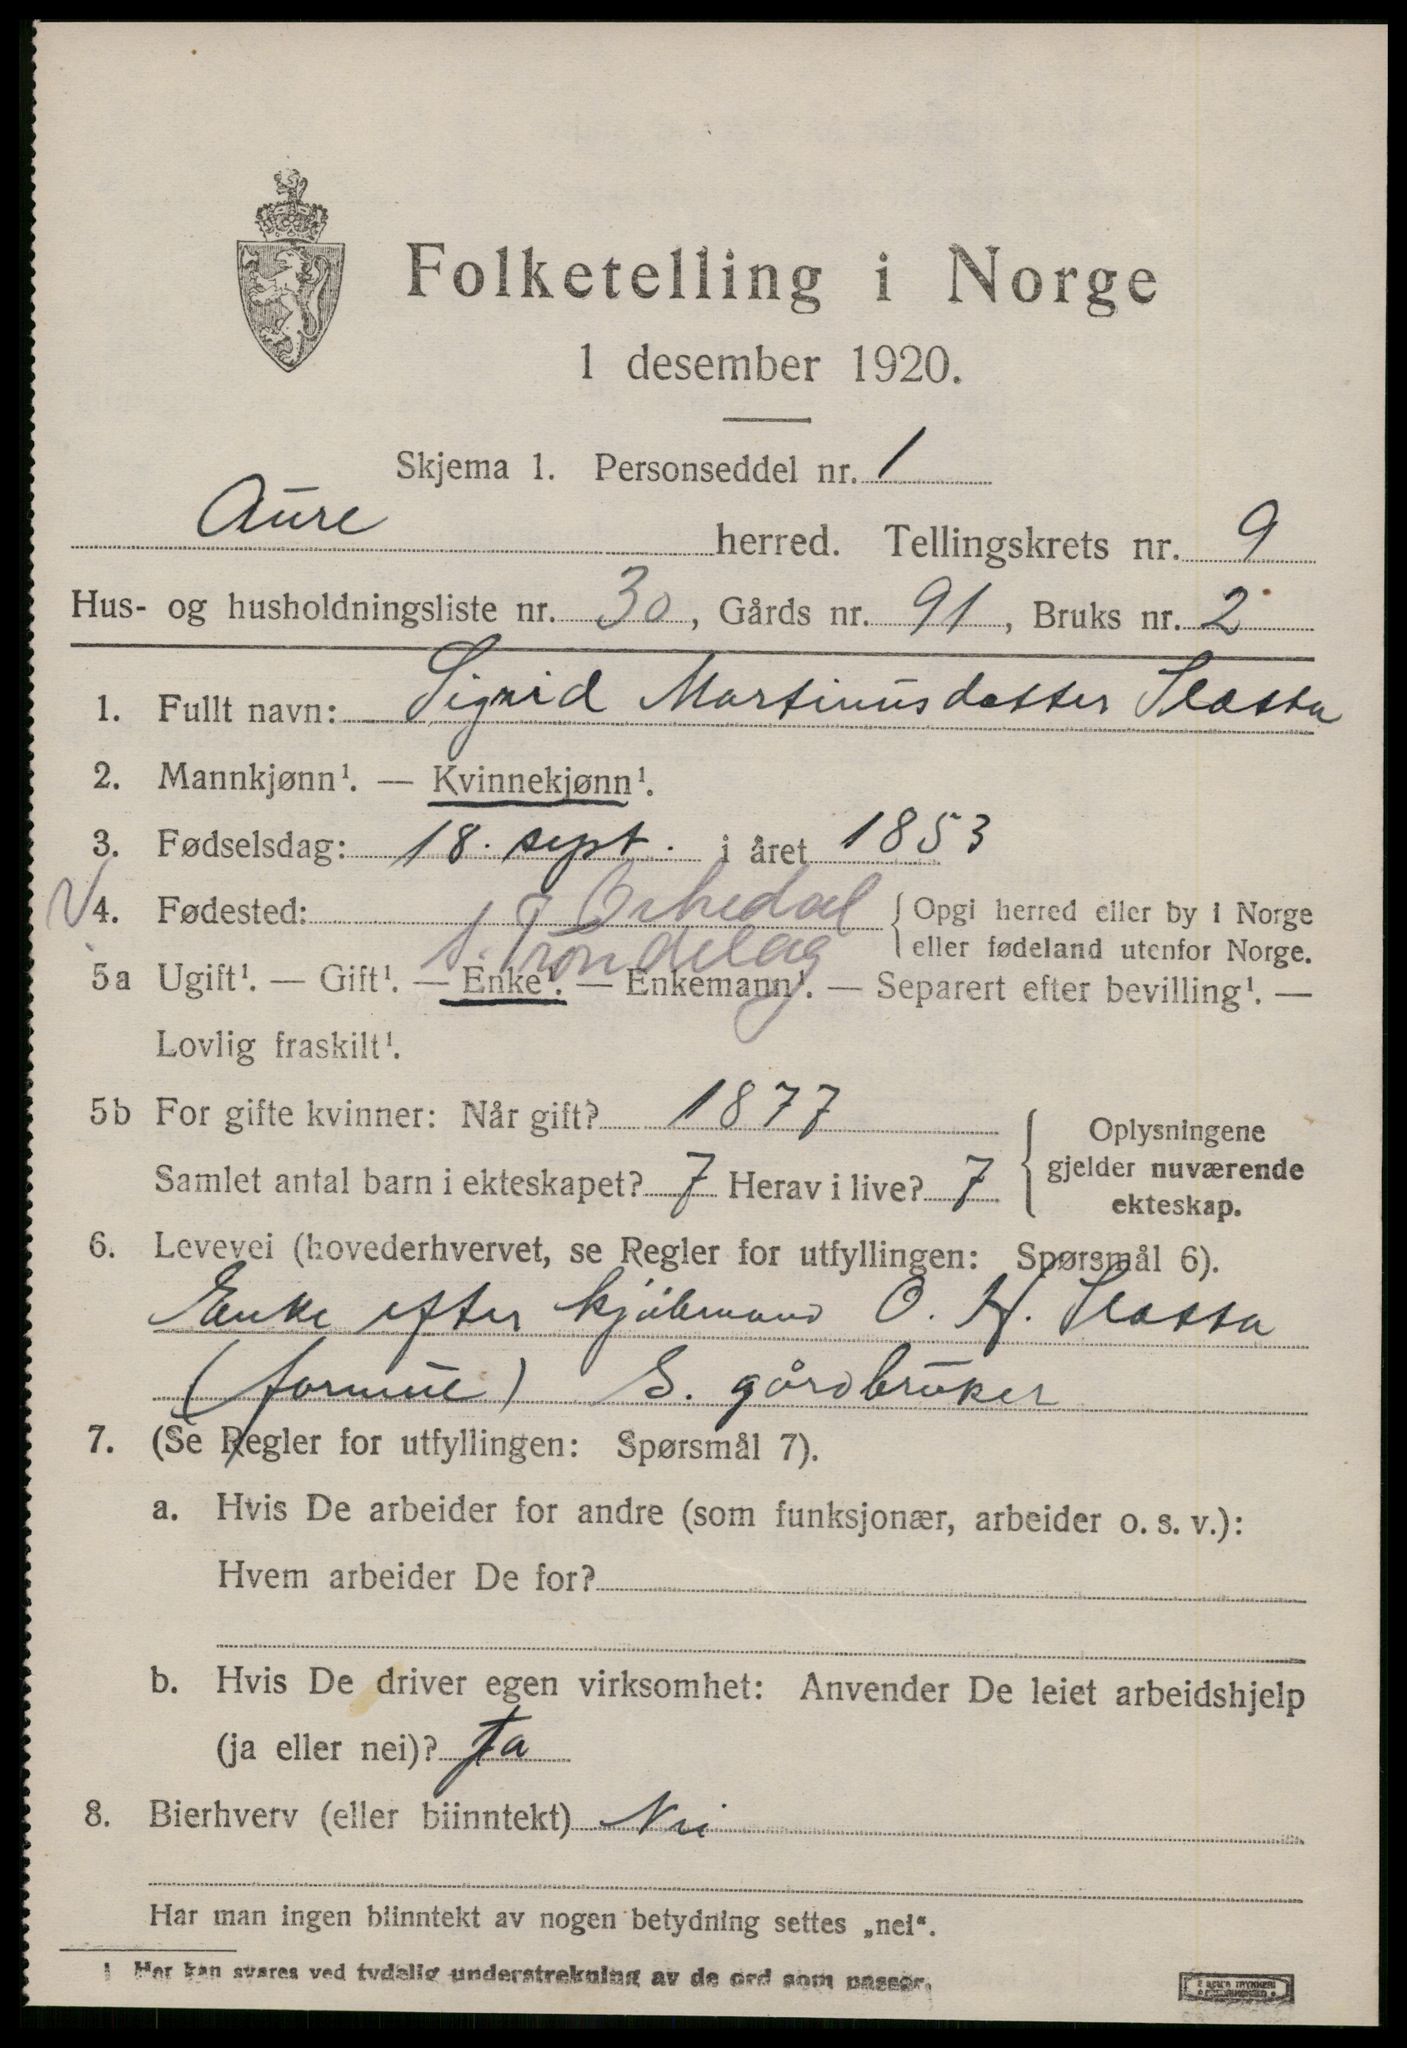 Folketelling i Norge
1 desember 1920.
Skjema 1. Personseddel nr. 1
Aure herred. Tellingskrets nr. 9
Hus- og husholdningsliste nr. 30, Gårds nr. 91, Bruks nr. 2
1. Fullt navn: Sigrid Martinusdatter
2. Mannkjønn¹. — Kvinnekjønn¹.
3. Fødselsdag: 18. sept. i året 1853
4. Fødested: Orkedal { Opgi herred eller by i Norge
S. Trøndelag eller fødeland utenfor Norge.
5a Ugift¹. — Gift¹. — Enke¹. — Enkemann¹. — Separert efter bevilling¹. —
Lovlig fraskilt¹.
5b For gifte kvinner: Når gift? 1877
Samlet antal barn i ekteskapet? 7 Herav i live? 7
{ Oplysningene
gjelder nuværende
ekteskap.
6. Levevei (hovederhvervet, se Regler for utfyllingen: Spørsmål 6).
Enke efter O. H.
(formue) S. gårdbruker
7. (Se Regler for utfyllingen: Spørsmål 7).
a. Hvis De arbeider for andre (som funksjonær, arbeider o. s. v.):
Hvem arbeider De for?
b. Hvis De driver egen virksomhet: Anvender De leiet arbeidshjelp
(ja eller nei)? Ja
8. Bierhverv (eller biinntekt) Nei
Har man ingen biinntekt av nogen betydning settes „nei“.
1 Her kan svares ved tydelig understrekning av de ord som passer.